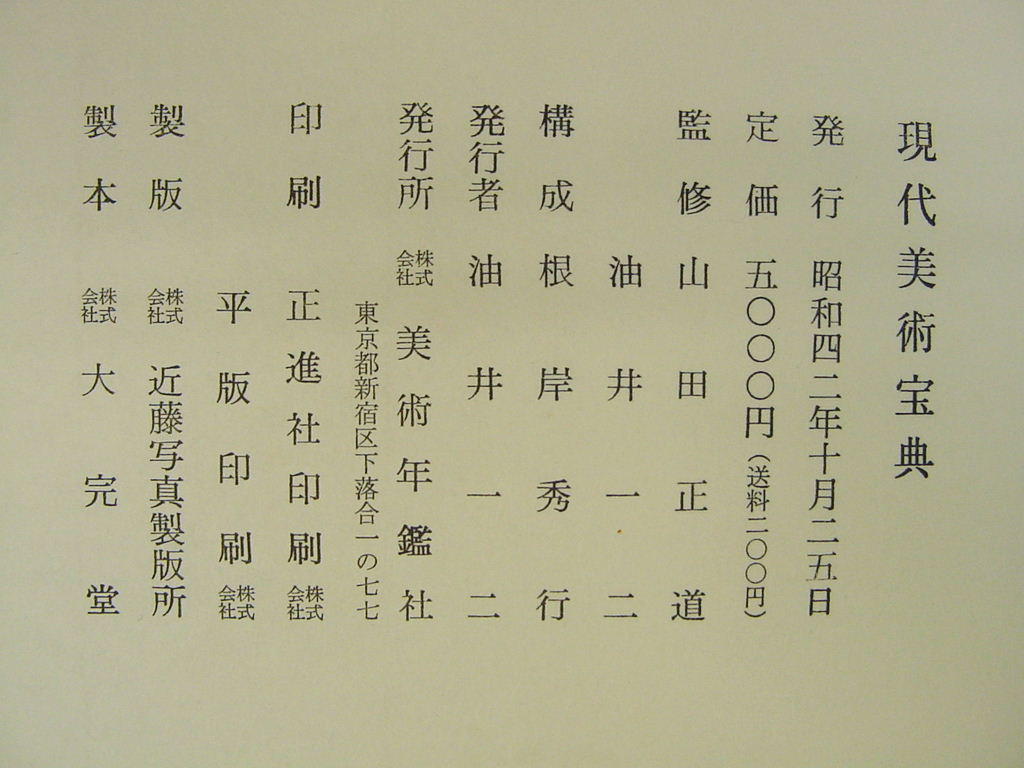 現代美術宝典
発行 昭和四二年十月二五日
定価 五〇〇〇円（送料二〇〇円）
監修 山田正道
油井一二
構成 根岸秀行
発行者 油井一二
発行所 株式会社 美術年鑑社
東京都新宿区下落合一の七七
印刷 正進社印刷株式会社
平版印刷株式会社
製版 株式会社 近藤写真製版所
製本 株式会社 大完堂